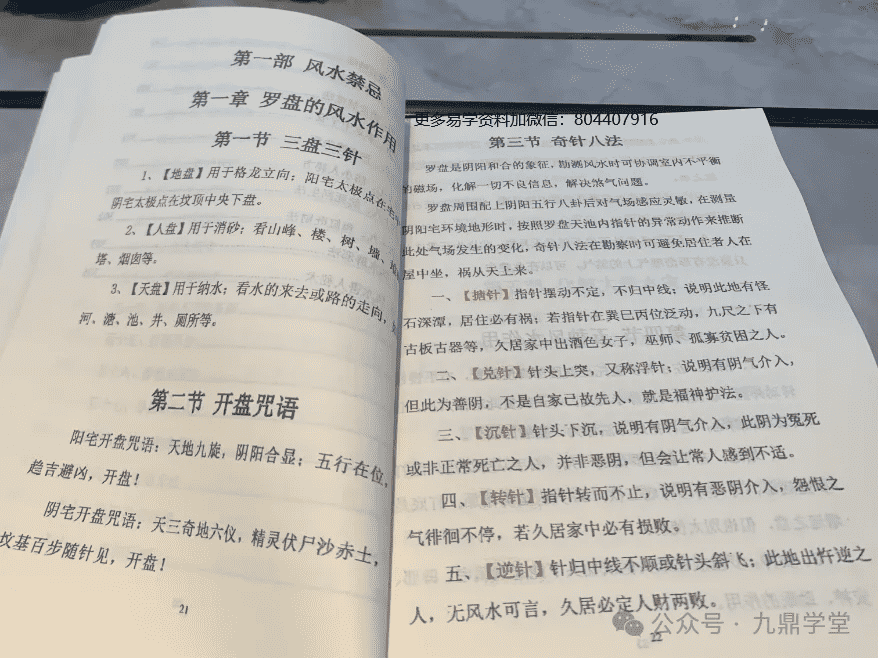 第一部 风水禁忌
第一章 罗盘的风水作用
第一节 三盘三针
1、【地盘】用于格龙立向；阳宅太极点在宅
阴宅太极点在坟顶中央下盘。
2、【人盘】用于消砂；看山峰、楼、树、墙、
塔、烟囱等。
3、【天盘】用于纳水；看水的来去或路的走向，
河、溏、池、井、厕所等。
第二节 开盘咒语
阳宅开盘咒语：天地九旋，阴阳合显；五行在位，
趋吉避凶，开盘！
阴宅开盘咒语：天三奇地六仪，精灵伏尸沙赤土，
坟基百步随针见，开盘！
21
更多易学资料加微信：804407916
第三节 奇针八法
罗盘是阴阳和合的象征，勘测风水时可协调室内不平衡
的磁场，化解一切不良信息，解决煞气问题。
罗盘周围配上阴阳五行八卦后对气场感应灵敏，在测量
阴阳宅环境地形时，按照罗盘天池内指针的异常动作来推断
此处气场发生的变化，奇针八法在勘察时可避免居住者人在
屋中坐，祸从天上来。
一、【搪针】指针摆动不定，不归中线；说明此地有怪
石深潭，居住必有祸；若指针在巽巳丙位泛动，九尺之下有
古板古器等，久居家中出酒色女子，巫师、孤寡贫困之人。
二、【兑针】针头上突，又称浮针；说明有阴气介入，
但此为善阴，不是自家已故先人，就是福神护法。
三、【沉针】针头下沉，说明有阴气介入，此阴为冤死
或非正常死亡之人，并非恶阴，但会让常人感到不适。
四、【转针】指针转而不止，说明有恶阴介入，怨恨之
气徘徊不停，若久居家中必有损败。
五、【逆针】针归中线不顺或针头斜飞；此地出忤逆之
人，无风水可言，久居必定人财两败。
22
公众号·九鼎学堂